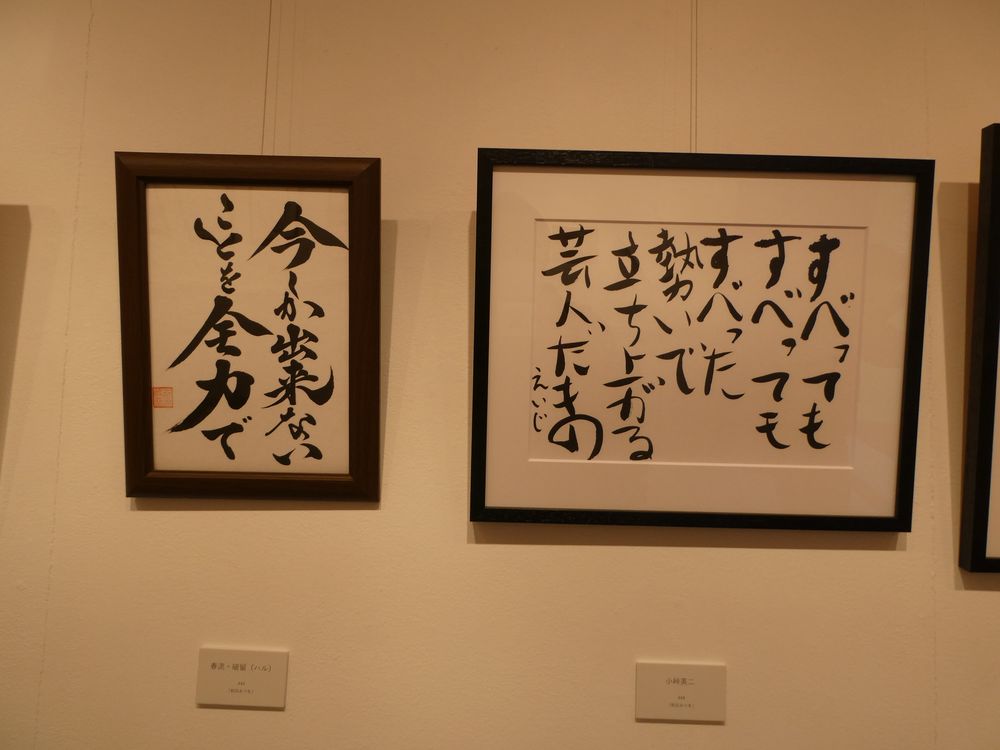 今しか出来ない
ことを全力で
すべっても
すべっても
すべった
勢いで
立ち上がる
芸人だもの
えいじ
春流・破留（ハル）
小峠英二